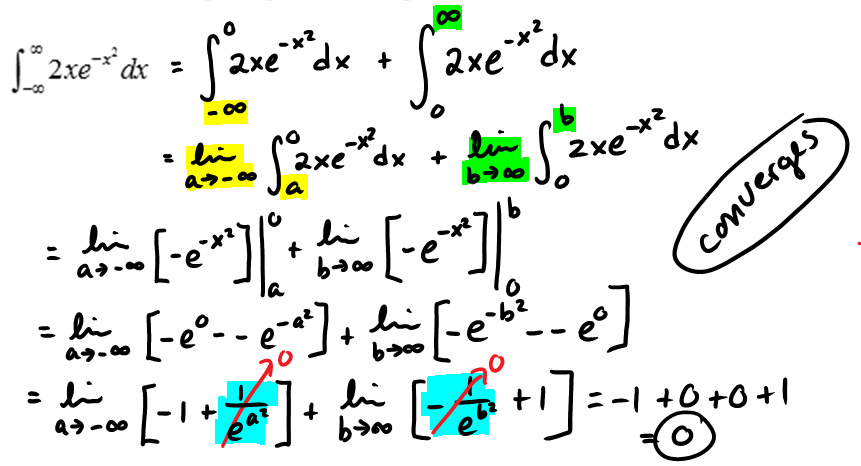 ∫_{-∞}^{∞} 2xe^{-x²} dx = ∫_{-∞}^{0} 2xe^{-x²} dx + ∫_{0}^{∞} 2xe^{-x²} dx
= lim_{a→-∞} ∫_{a}^{0} 2xe^{-x²} dx + lim_{b→∞} ∫_{0}^{b} 2xe^{-x²} dx
converges
= lim_{a→-∞} [-e^{-x²}]|_{a}^{0} + lim_{b→∞} [-e^{-x²}]|_{0}^{b}
= lim_{a→-∞} [-e^{0} - - e^{-a²}] + lim_{b→∞} [-e^{-b²} - - e^{0}]
= lim_{a→-∞} [-1 + 1/e^{a²} → 0] + lim_{b→∞} [-1/e^{b²} → 0 + 1] = -1 + 0 + 0 + 1
= 0